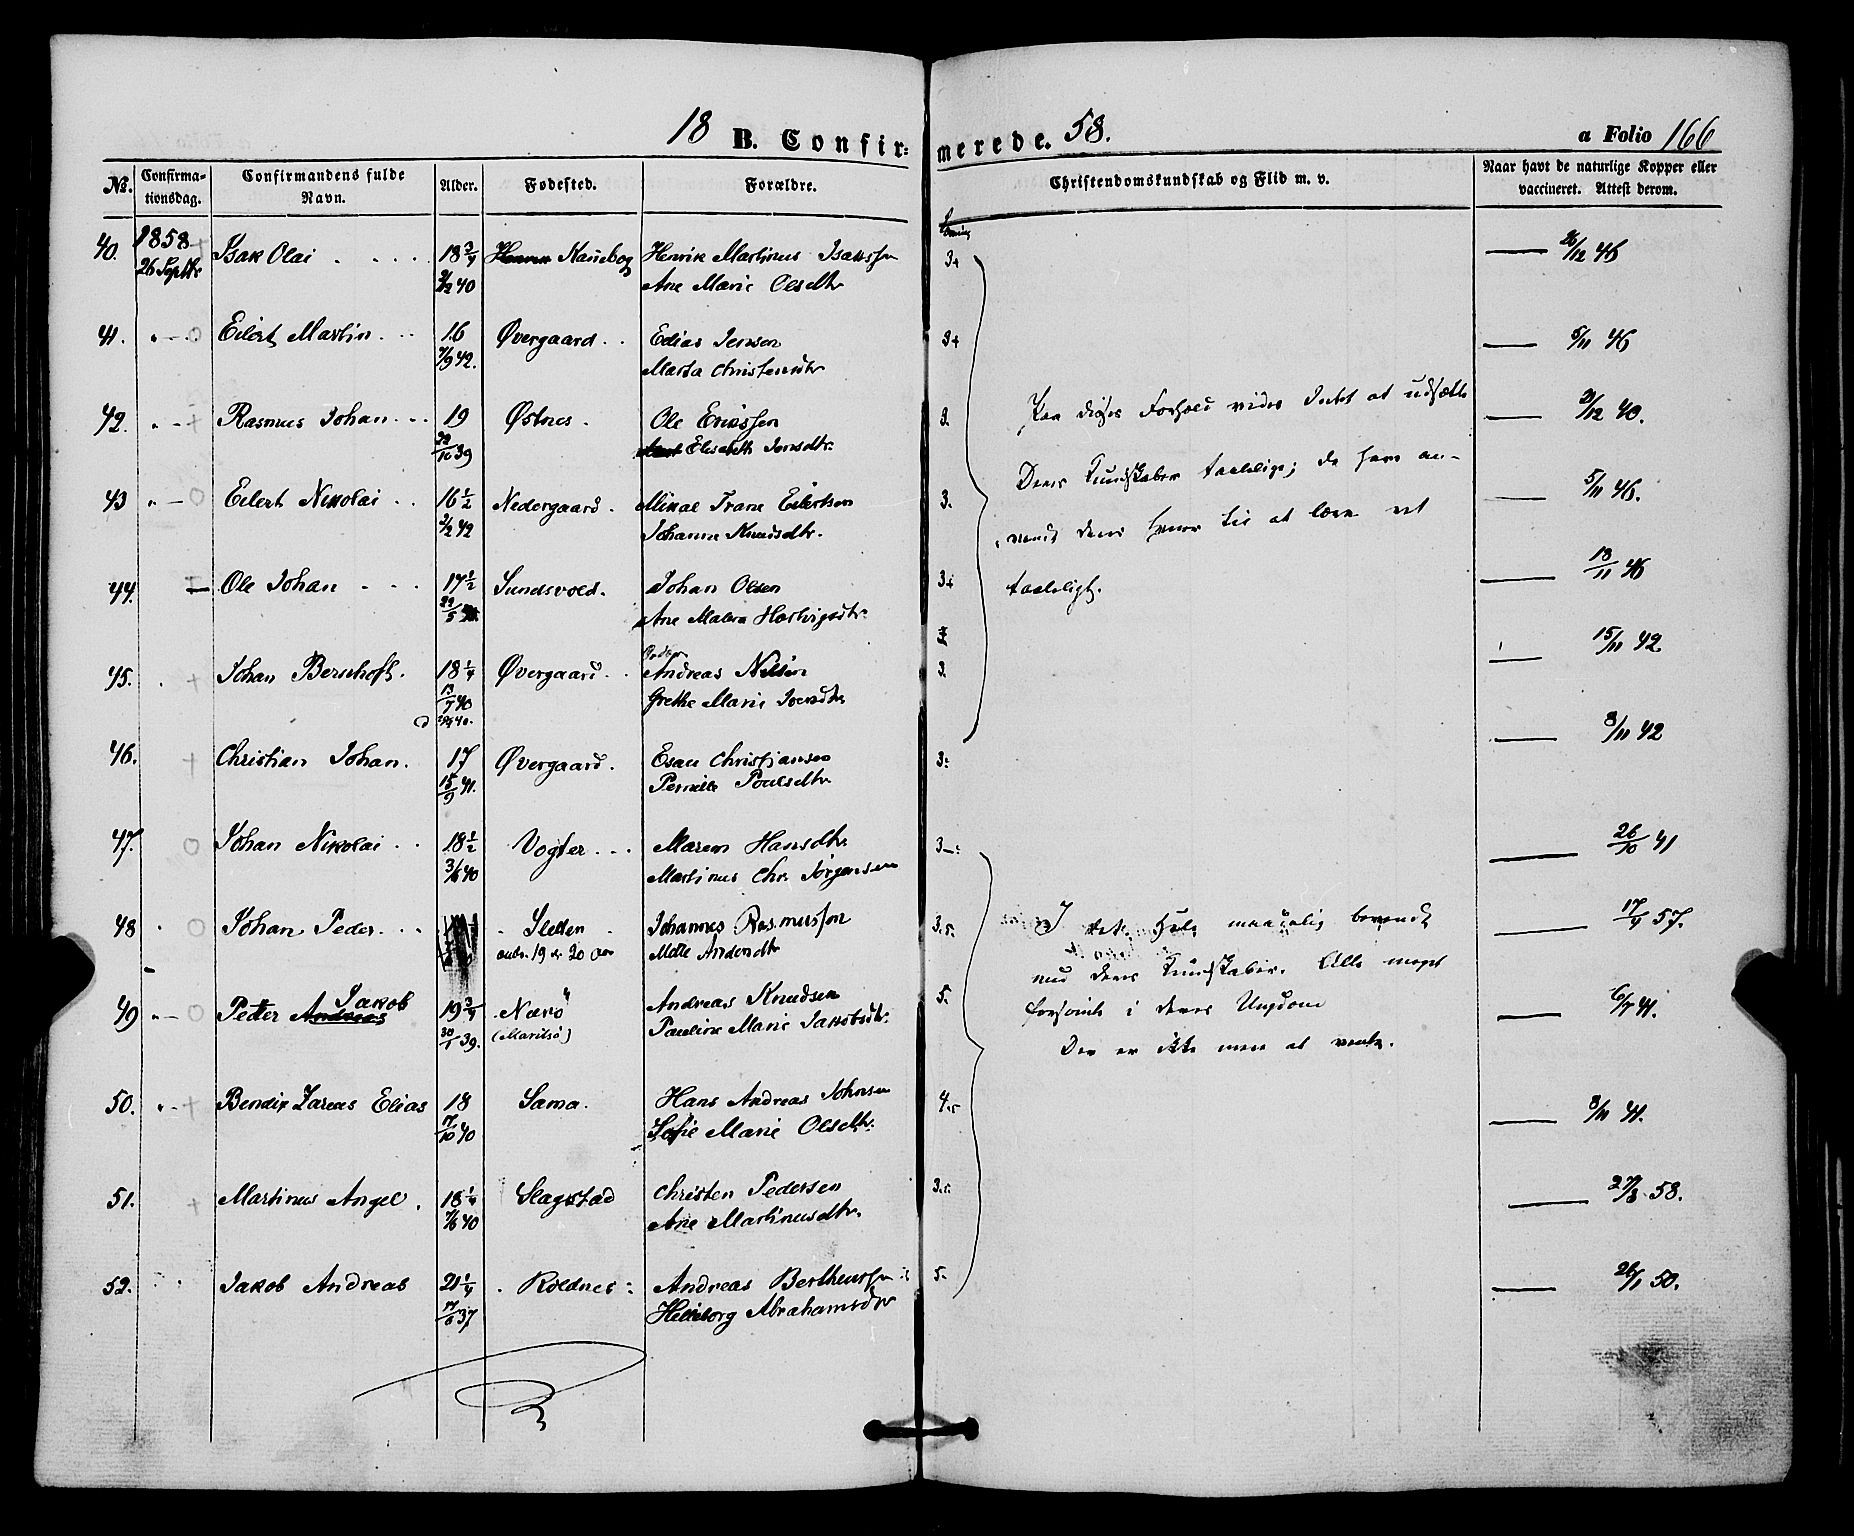 18 B. Confir: merede. 58. a Folio 166
No. Confirma-tionsdag. Confirmandens fulde Navn. Alder. Fødested. Forældre. Christendomskundskab og Flid m. v. Naar havt de naturlige Kopper eller vaccineret. Attest derom.
40. 1858 Isak Olai . . . . 18 3/4 Kassebog Henrik Martinus Isakssen 3+ — 26/12 46
26 Septbr 2/2 40 Ane Marie Olsdtr
41. " — o Eilert Martin . . . 16 Øvergaard . . Edias Jensen 3+ — 5/11 46
7/9 42. Marta Christensdtr
42. " — + Rasmus Johan . . . 19 Østnes . Ole Erikssen 3. — 21/12 40.
22/10 39 Elisabeth Jonsdtr.
Paa disses Forhold vides Intet at udsætte
43 " — o Eilert Nikolai . . 16 1/2 Nedergaard . Mikal Trane Eilertsen 3. — 5/11 46.
2/2 42 Johanna Knudsdtr.
Deres Kundskaber taalelige; de have an-
vendt deres Evner til at lære ret
taaleligt.
44. Ole Johan . . . 17 1/2 Sundsvold. Johan Olsen 3+ — 13/11 46
22/5 Ane Malena Hartvigsdtr.
45. + Johan Bernhoft. 18 1/4 Øvergaard . . Andreas Nilsen 3 — 15/11 42
40 Grethe Marie Iversdtr
46. + Christian Johan. 17 Øvergaard. Esau Christjansen 3: — 8/11 42
15/9 41. Pernille Poulsdtr
47. o Johan Nikolai . . 18 1/2 Vogter . . . Maren Hansdtr. — 26/10 41
3/6 40 Martinus Chr. Jørgensen
48 o Johan Peder . . . Sletten Johannes Rasmussen 3.5. — 17/4 57.
19 a 20 Aar Mette Andersdtr
I det Hele maadelig bevendt
med deres Kundskaber. Alle meget
forsømte i deres Ungdom
Der er ikke mere at vente.
49 " — o Petter Andreas Jakob 19 3/4 Nærø Andreas Knudsen 5. — 6/7 41.
30/1 39. Pauline Marie Jakobsdtr.
50. " — + Bendix Zareas Elias 18 Sama. Hans Andreas Johnsen — 8/11 41.
17/10 40 Sofie Marie Olsdtr.
51. + Martinus Angel . 18 1/4 Slagstad Christen Pedersen — 27/3 58.
7/6 40 Ane Martinusdtr.
52. Jakob Andreas 21 1/4 . Roldnes : Andreas Bertheussen 5. — 26/1 50.
17/6 37 Helleborg Abrahamsdtr